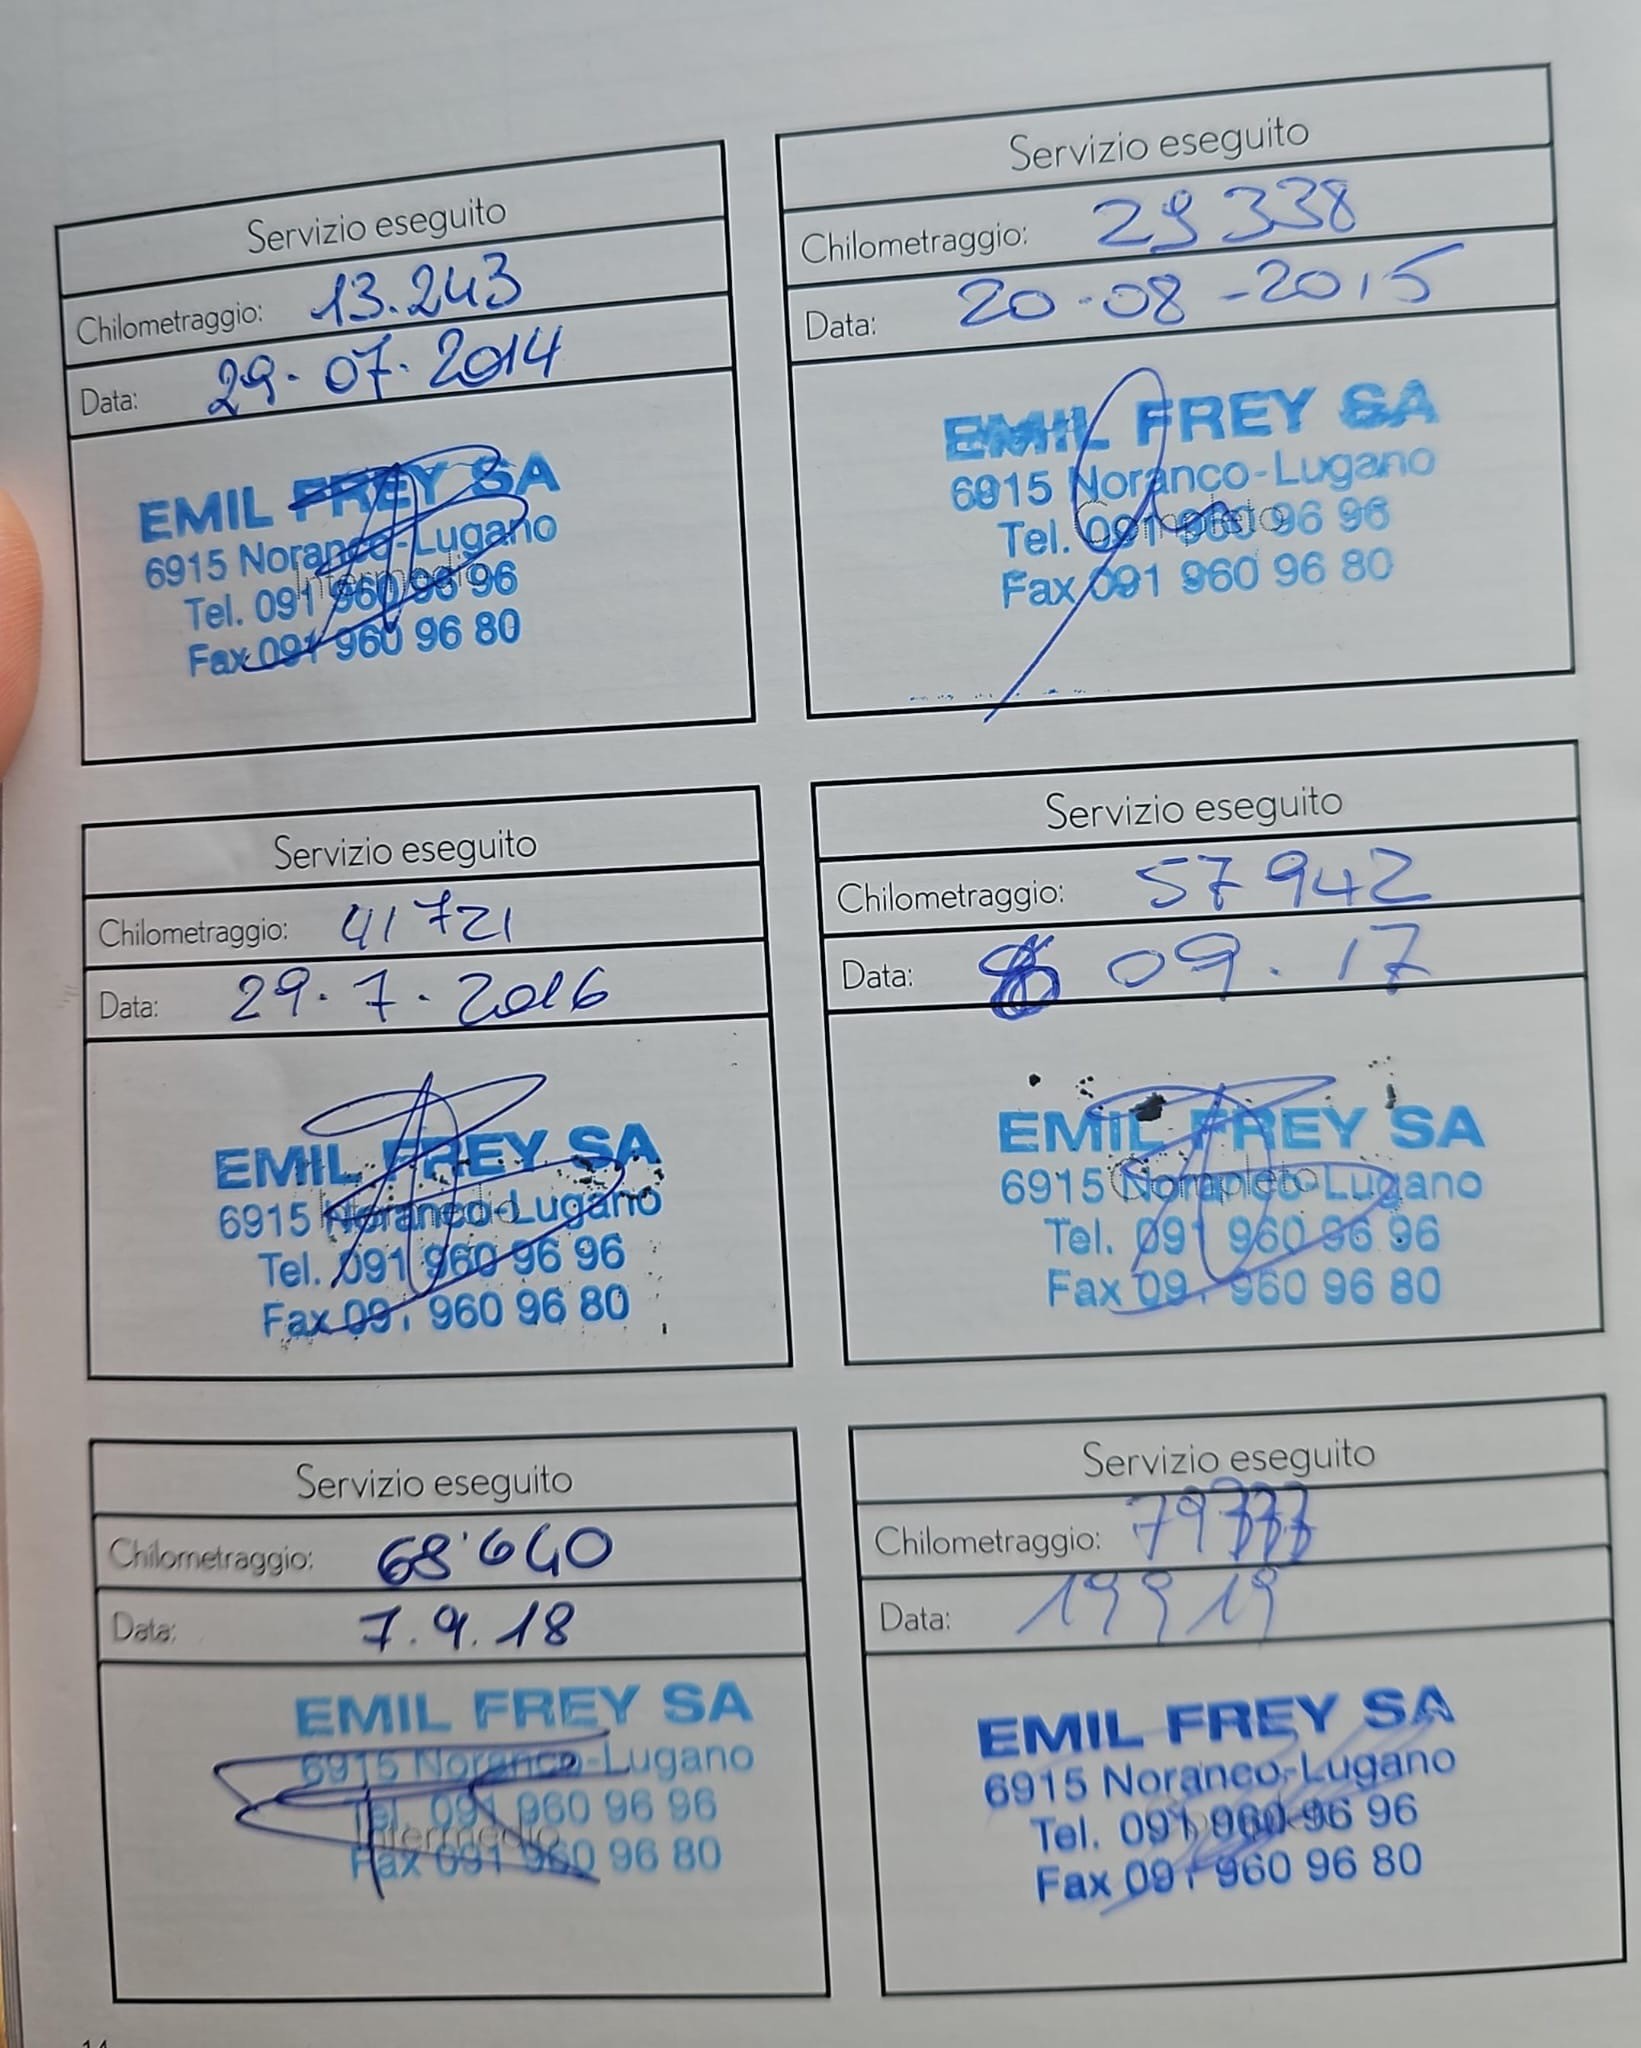 Servizio eseguito
Chilometraggio: 13.243
Data: 29.07.2014
EMIL FREY SA
6915 Noranco-Lugano
Intermedio
Tel. 091 960 96 96
Fax 091 960 96 80
Servizio eseguito
Chilometraggio: 29338
Data: 20-08-2015
EMIL FREY SA
6915 Noranco-Lugano
Completo
Tel. 091 960 96 96
Fax 091 960 96 80
Servizio eseguito
Chilometraggio: 41721
Data: 29.7.2016
EMIL FREY SA
6915 Noranco-Lugano
Intermedio
Tel. 091 960 96 96
Fax 091 960 96 80
Servizio eseguito
Chilometraggio: 57942
Data: 09.17
EMIL FREY SA
6915 Noranco-Lugano
Completo
Tel. 091 960 96 96
Fax 091 960 96 80
Servizio eseguito
Chilometraggio: 68'640
Data: 7.9.18
EMIL FREY SA
6915 Noranco-Lugano
Tel. 091 960 96 96
Intermedio
Fax 091 960 96 80
Servizio eseguito
Chilometraggio:
Data: 19 9 19
EMIL FREY SA
6915 Noranco-Lugano
Tel. 091 960 96 96
Fax 091 960 96 80